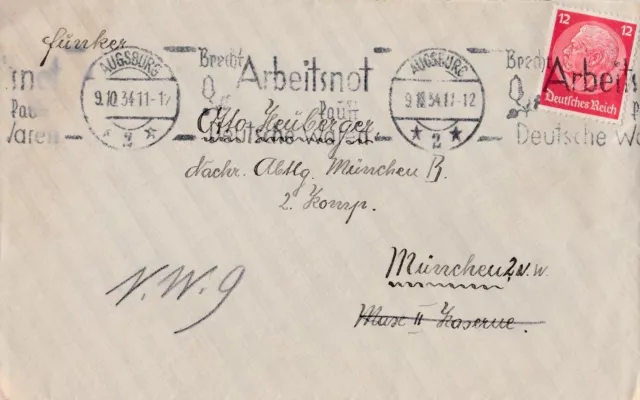 Funker
Brecht
Arbeitsnot
kauft
Deutsche Waren
AUGSBURG
9.10.34.11-12
* 2 *
AUGSBURG
9.10.34.11-12
* 2 *
Brecht
Arbeits
Deutsche Wa
not
kau
Waren
12 12
Deutsches Reich
Otto Neuberger,
Nachr. Abtlg. München B.
2. Komp.
München 2 N.W.
Max II Kaserne.
N.W. 9